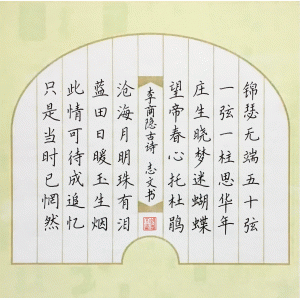 锦瑟无端五十弦
一弦一柱思华年
庄生晓梦迷蝴蝶
望帝春心托杜鹃
李商隐古诗 志文书
沧海月明珠有泪
蓝田日暖玉生烟
此情可待成追忆
只是当时已惘然